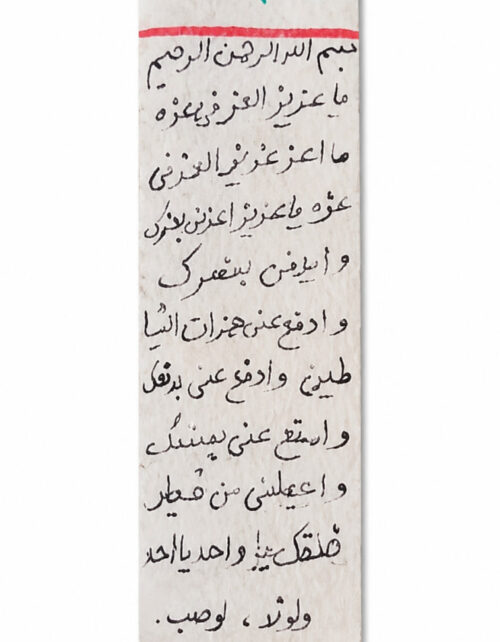 بسم الله الرحمن الرحيم
يا عزيز العز في عزه
ما اعز عزيز العز في
عزه يا عزيز اعزني بعزك
و ايدني بنصرك
و ادفع عني همزات الشيا
طين و ادفع عني بدفعك
و امنع عني بمنعك
و اجعلني من خيار
خلقك يا واحد يا احد